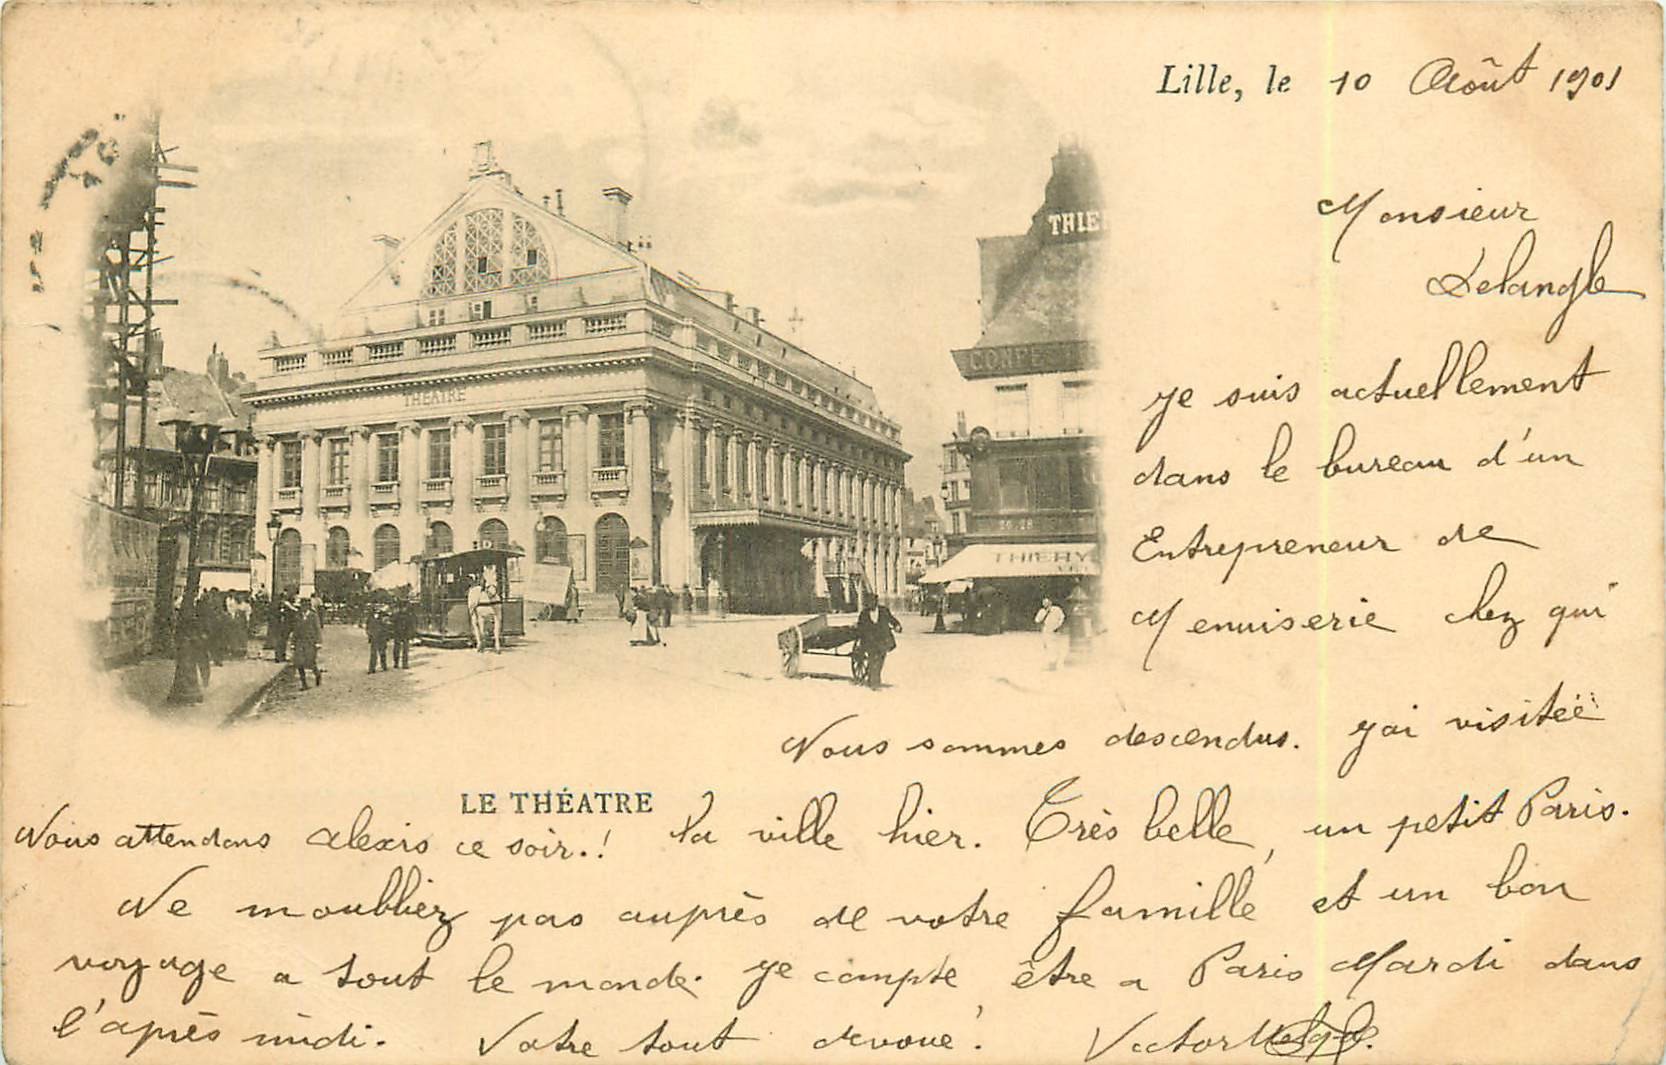 Lille, le 10 Août 1901
Monsieur
Delangle
je suis actuellement
dans le bureau d'un
Entrepreneur de
Menuiserie chez qui
Nous sommes descendus. j'ai visitée
la ville hier. Très belle, un petit Paris.
Nous attendons Alexis ce soir.!
Ne moubliez pas auprès de votre famille et un bon
voyage a tout le monde. je compte être a Paris Mardi dans
l'après midi. Votre tout dévoué. Victor
LE THÉATRE
THÉATRE
THIE
CONFE
26.28
THIERY